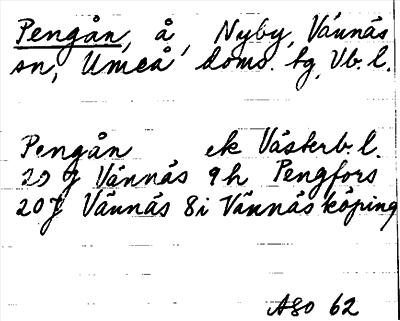 Pengån, å, Nyby, Vännäs
sn, Umeå doms. tg, Vb. l.
Pengån ek Västerb. l.
20 J Vännäs 9h Pengfors
20 J Vännäs 8i Vännäs köping
ASO 62